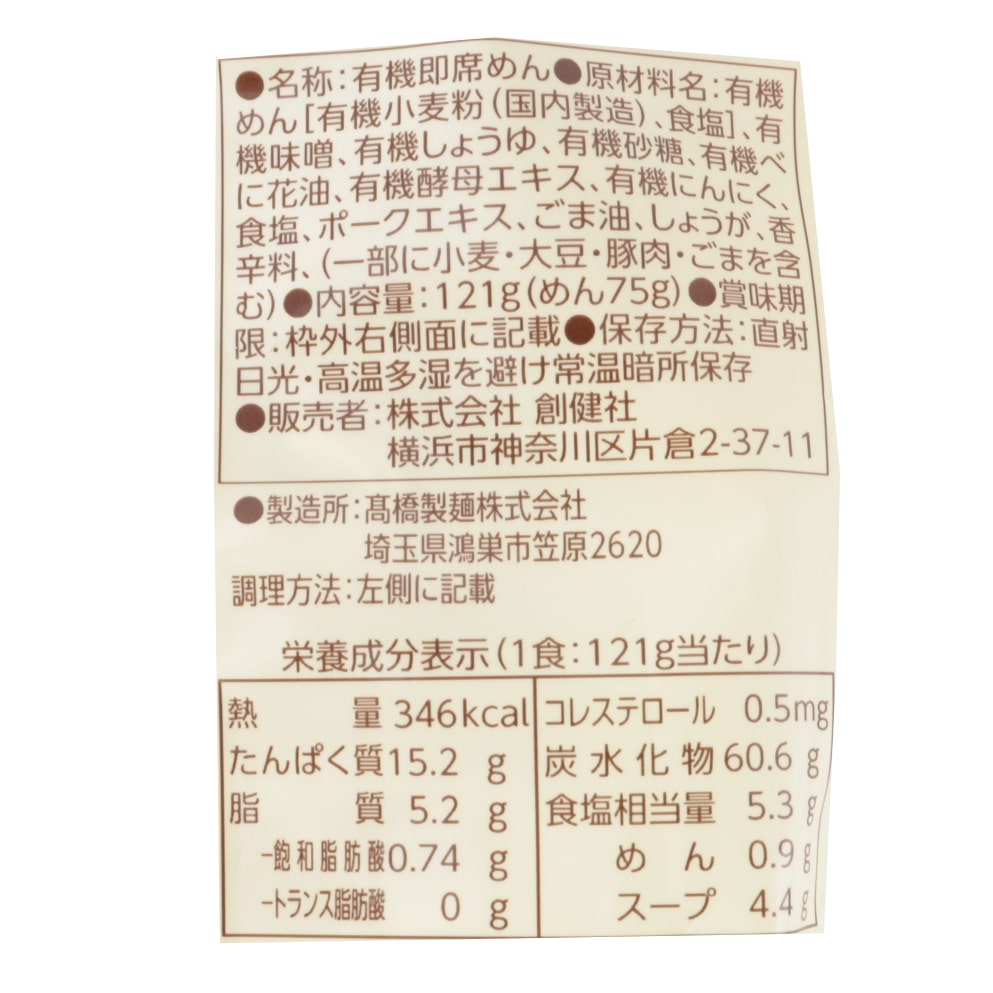 ●名称：有機即席めん●原材料名：有機
めん［有機小麦粉（国内製造）、食塩］、有
機味噌、有機しょうゆ、有機砂糖、有機べ
に花油、有機酵母エキス、有機にんにく、
食塩、ポークエキス、ごま油、しょうが、香
辛料、（一部に小麦・大豆・豚肉・ごまを含
む）●内容量：121g（めん75g）●賞味期
限：枠外右側面に記載●保存方法：直射
日光・高温多湿を避け常温暗所保存
●販売者：株式会社 創健社
横浜市神奈川区片倉2-37-11
●製造所：髙橋製麺株式会社
埼玉県鴻巣市笠原2620
調理方法：左側に記載
栄養成分表示（1食：121g当たり）
熱量 346kcal
たんぱく質 15.2 g
脂質 5.2 g
－飽和脂肪酸 0.74 g
－トランス脂肪酸 0 g
コレステロール 0.5mg
炭水化物 60.6 g
食塩相当量 5.3 g
めん 0.9 g
スープ 4.4 g